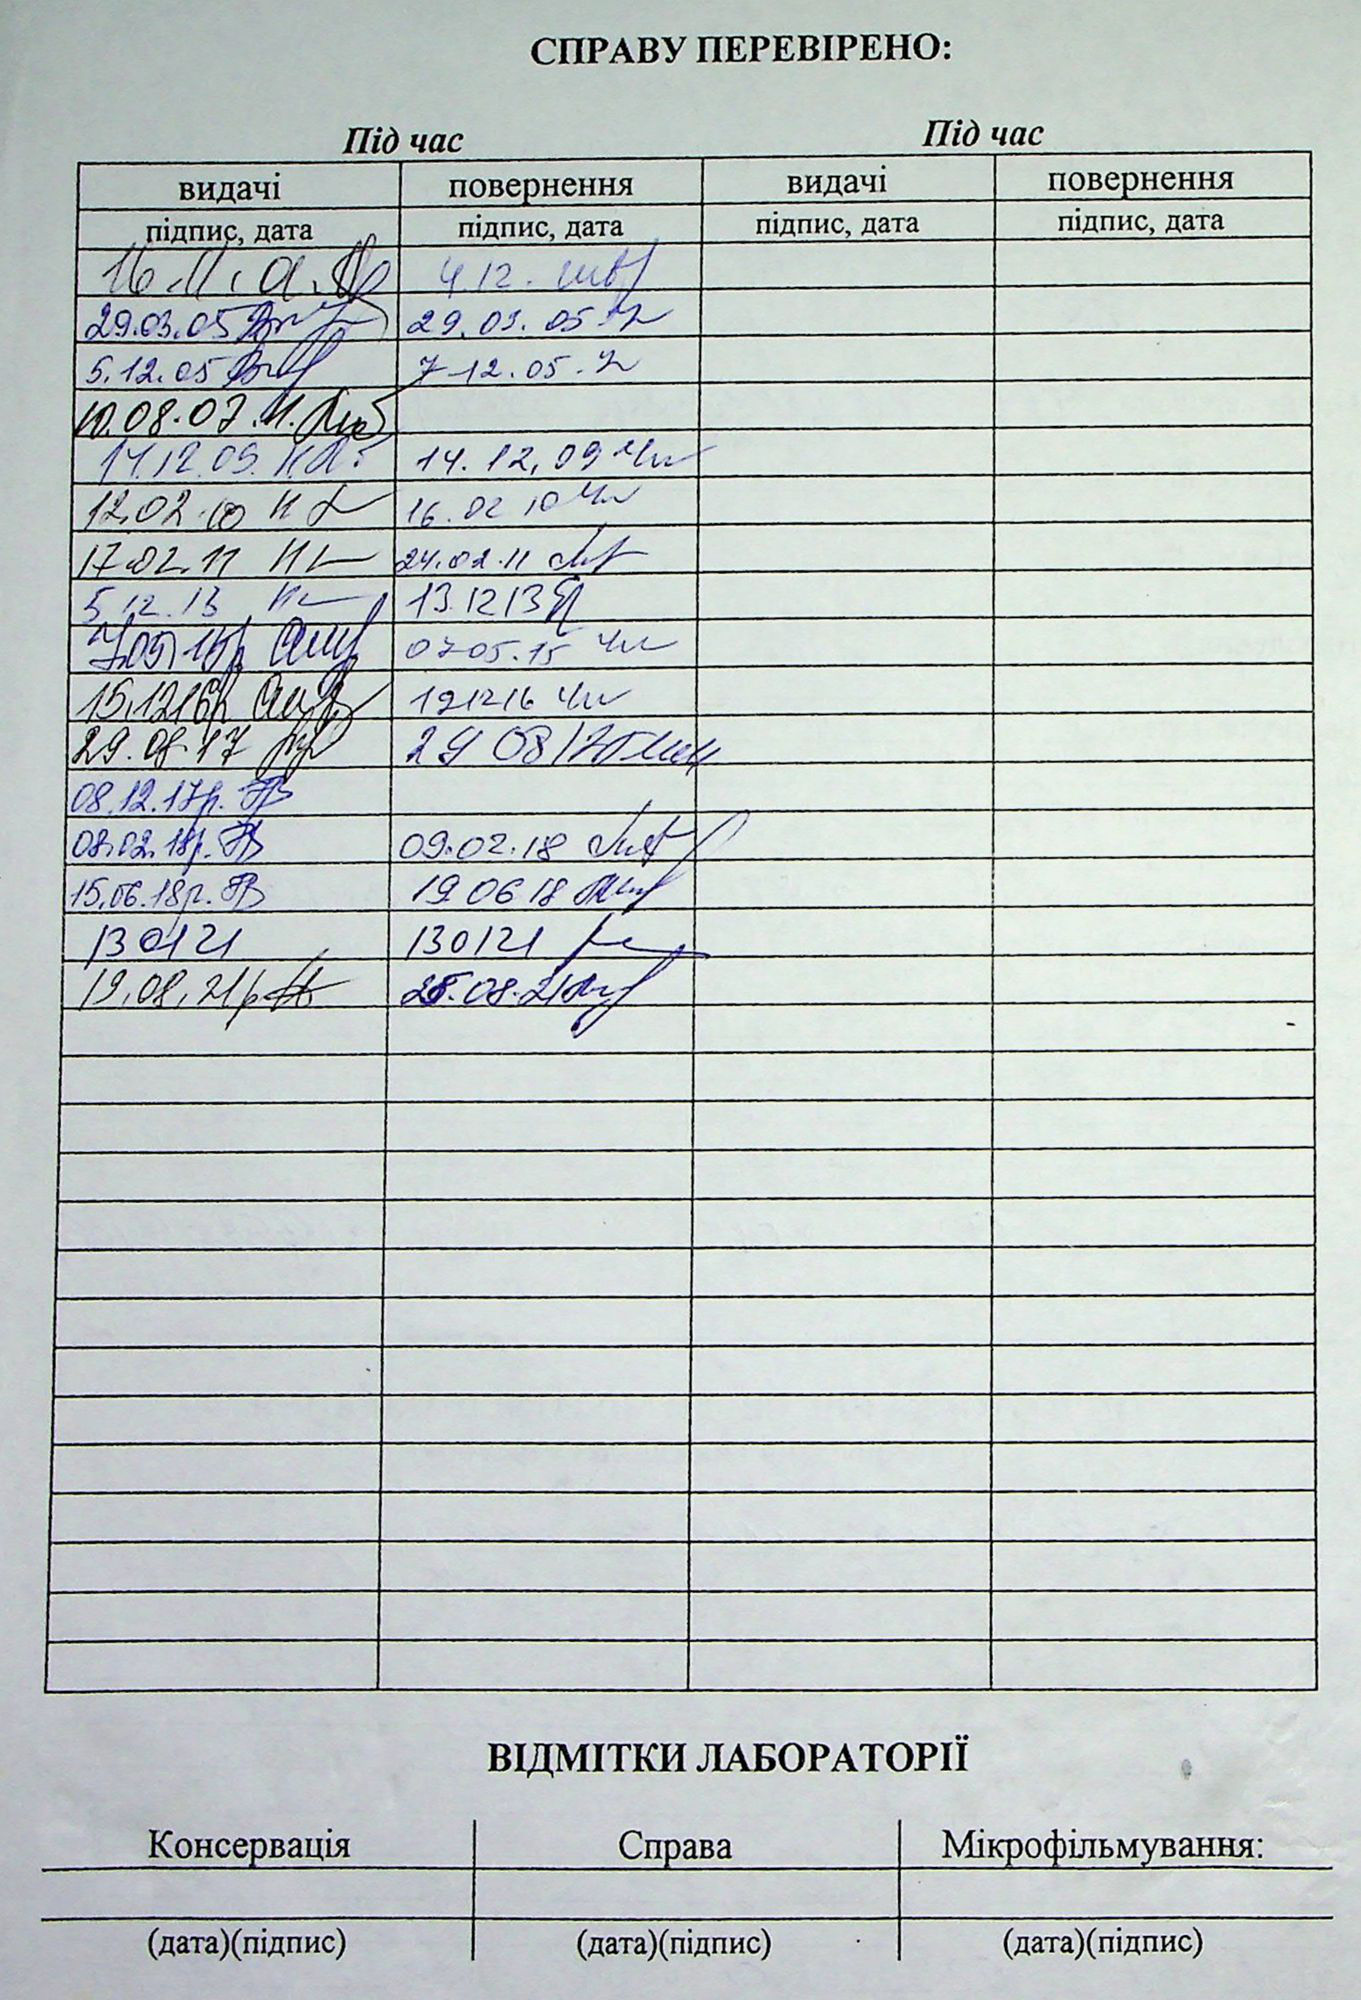 СПРАВУ ПЕРЕВІРЕНО:
Під час Під час
видачі повернення видачі повернення
підпис, дата підпис, дата підпис, дата підпис, дата
16.11. 4.12.
29.03.05 29.03.05
5.12.05 7.12.05
10.08.07
14.12.09. 14.12.09
12.02.10 16.02.10
17.02.11 24.02.11
5.12.13 13.12.13
7.05.15р 07.05.15
15.12.16р 191216
29.08.17 29 08 17
08.12.17р.
08.02.18р. 09.02.18
15.06.18р. 19 06 18
130121 130121
19.08.21р 25.08.21
ВІДМІТКИ ЛАБОРАТОРІЇ
Консервація Справа Мікрофільмування:
(дата)(підпис) (дата)(підпис) (дата)(підпис)